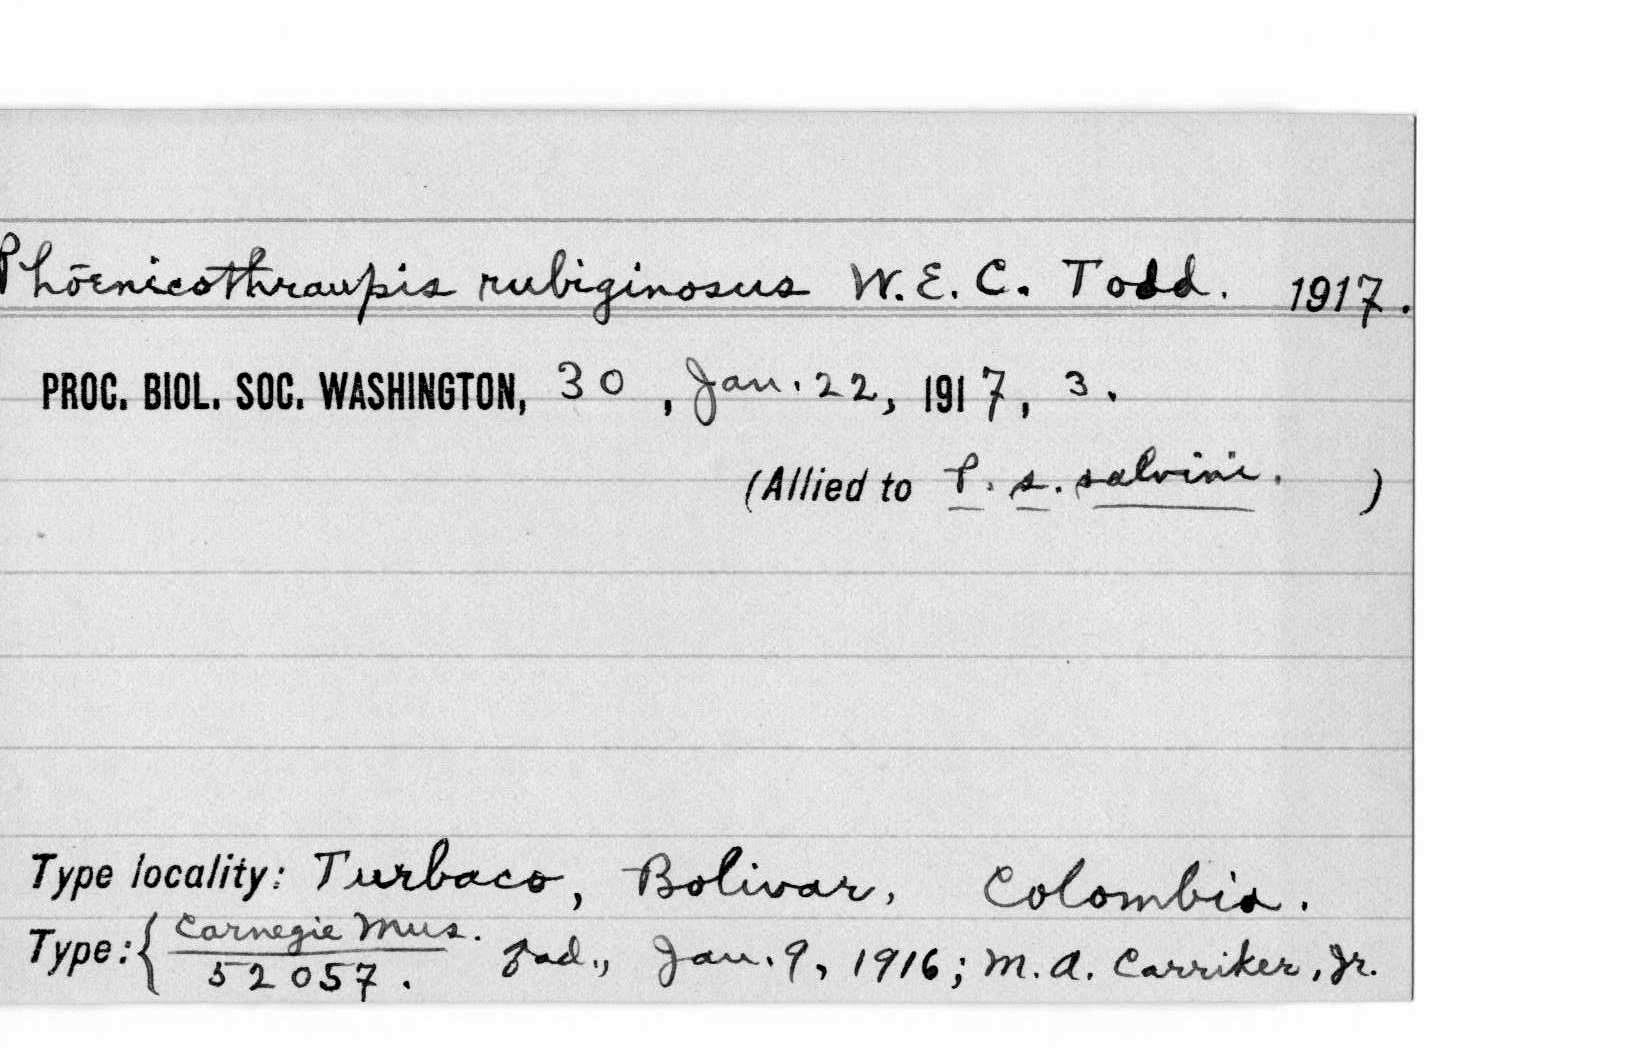 Phoenicothraupis rubiginosus W.E.C. Todd. 1917.
PROC. BIOL. SOC. WASHINGTON, 30, Jan. 22, 1917, 3.
(Allied to P. s. salvini. )
Type locality: Turbaco, Bolivar, Colombia.
Type: { Carnegie Mus.
52057. ad., Jan. 9, 1916; M. A. Carriker, Jr.